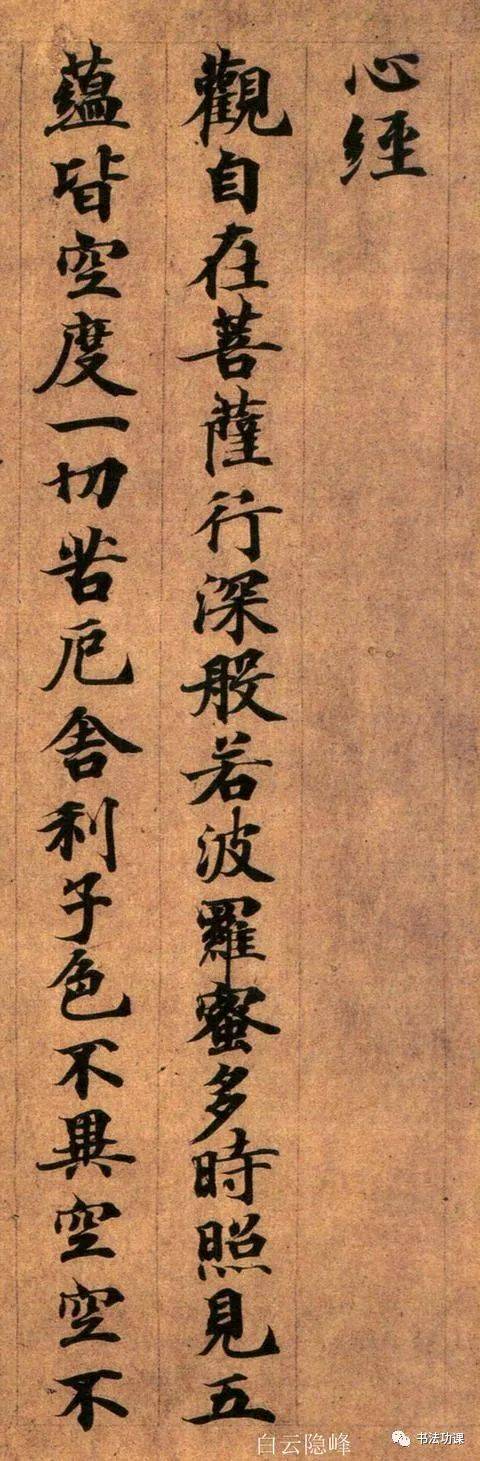 心經
觀自在菩薩行深般若波羅蜜多時照見五
蘊皆空度一切苦厄舍利子色不異空空不
白云隐峰
书法功课